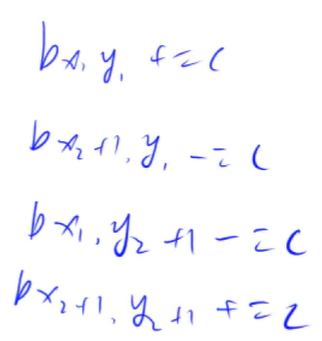 bx₁, y₁ += c
bx₂+1, y₁ -= c
bx₁, y₂+1 -= c
bx₂+1, y₂+1 += c